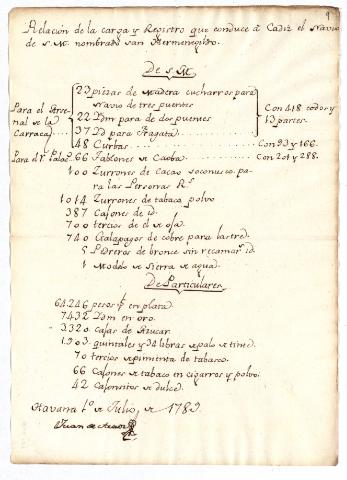 Relación de la carga y Registro que conduce á Cadiz el Navio
de S. M. nombrado San Hermenegildo.
De S. M.
Para el Arsenal de la Carraca
23 piezas de Madera cucharros para
Navio de tres puentes
22 Idm para de dos puentes
37 Id para Fragata
Con 418 codos y
13 partes.
48 Curbas Con 93 y 166.
Para el Rl Palac. 66 Tablones de Caoba Con 201 y 288.
100 Zurrones de Cacao soconusco pa-
ra las Personas Rs.
1014 Zurrones de tabaco polvo
387 Cajones de id.
700 tercios de el de oja
740 Galapagos de cobre para
5 Pedreros de bronce sin recamar id.
1 Modelo de Sierra de agua.
De Particulares
64.246 pesos fs en plata.
7432 Idm en oro.
3320 Cajas de Azucar
1.903 quintales y 34 libras de palo de tinte.
70 tercios de pimienta de tabasco.
66 Cajones de tabaco en cigarros y polvo.
42 Cajoncitos de dulce.
Havana 1º de Julio, de 1789.
Juan de